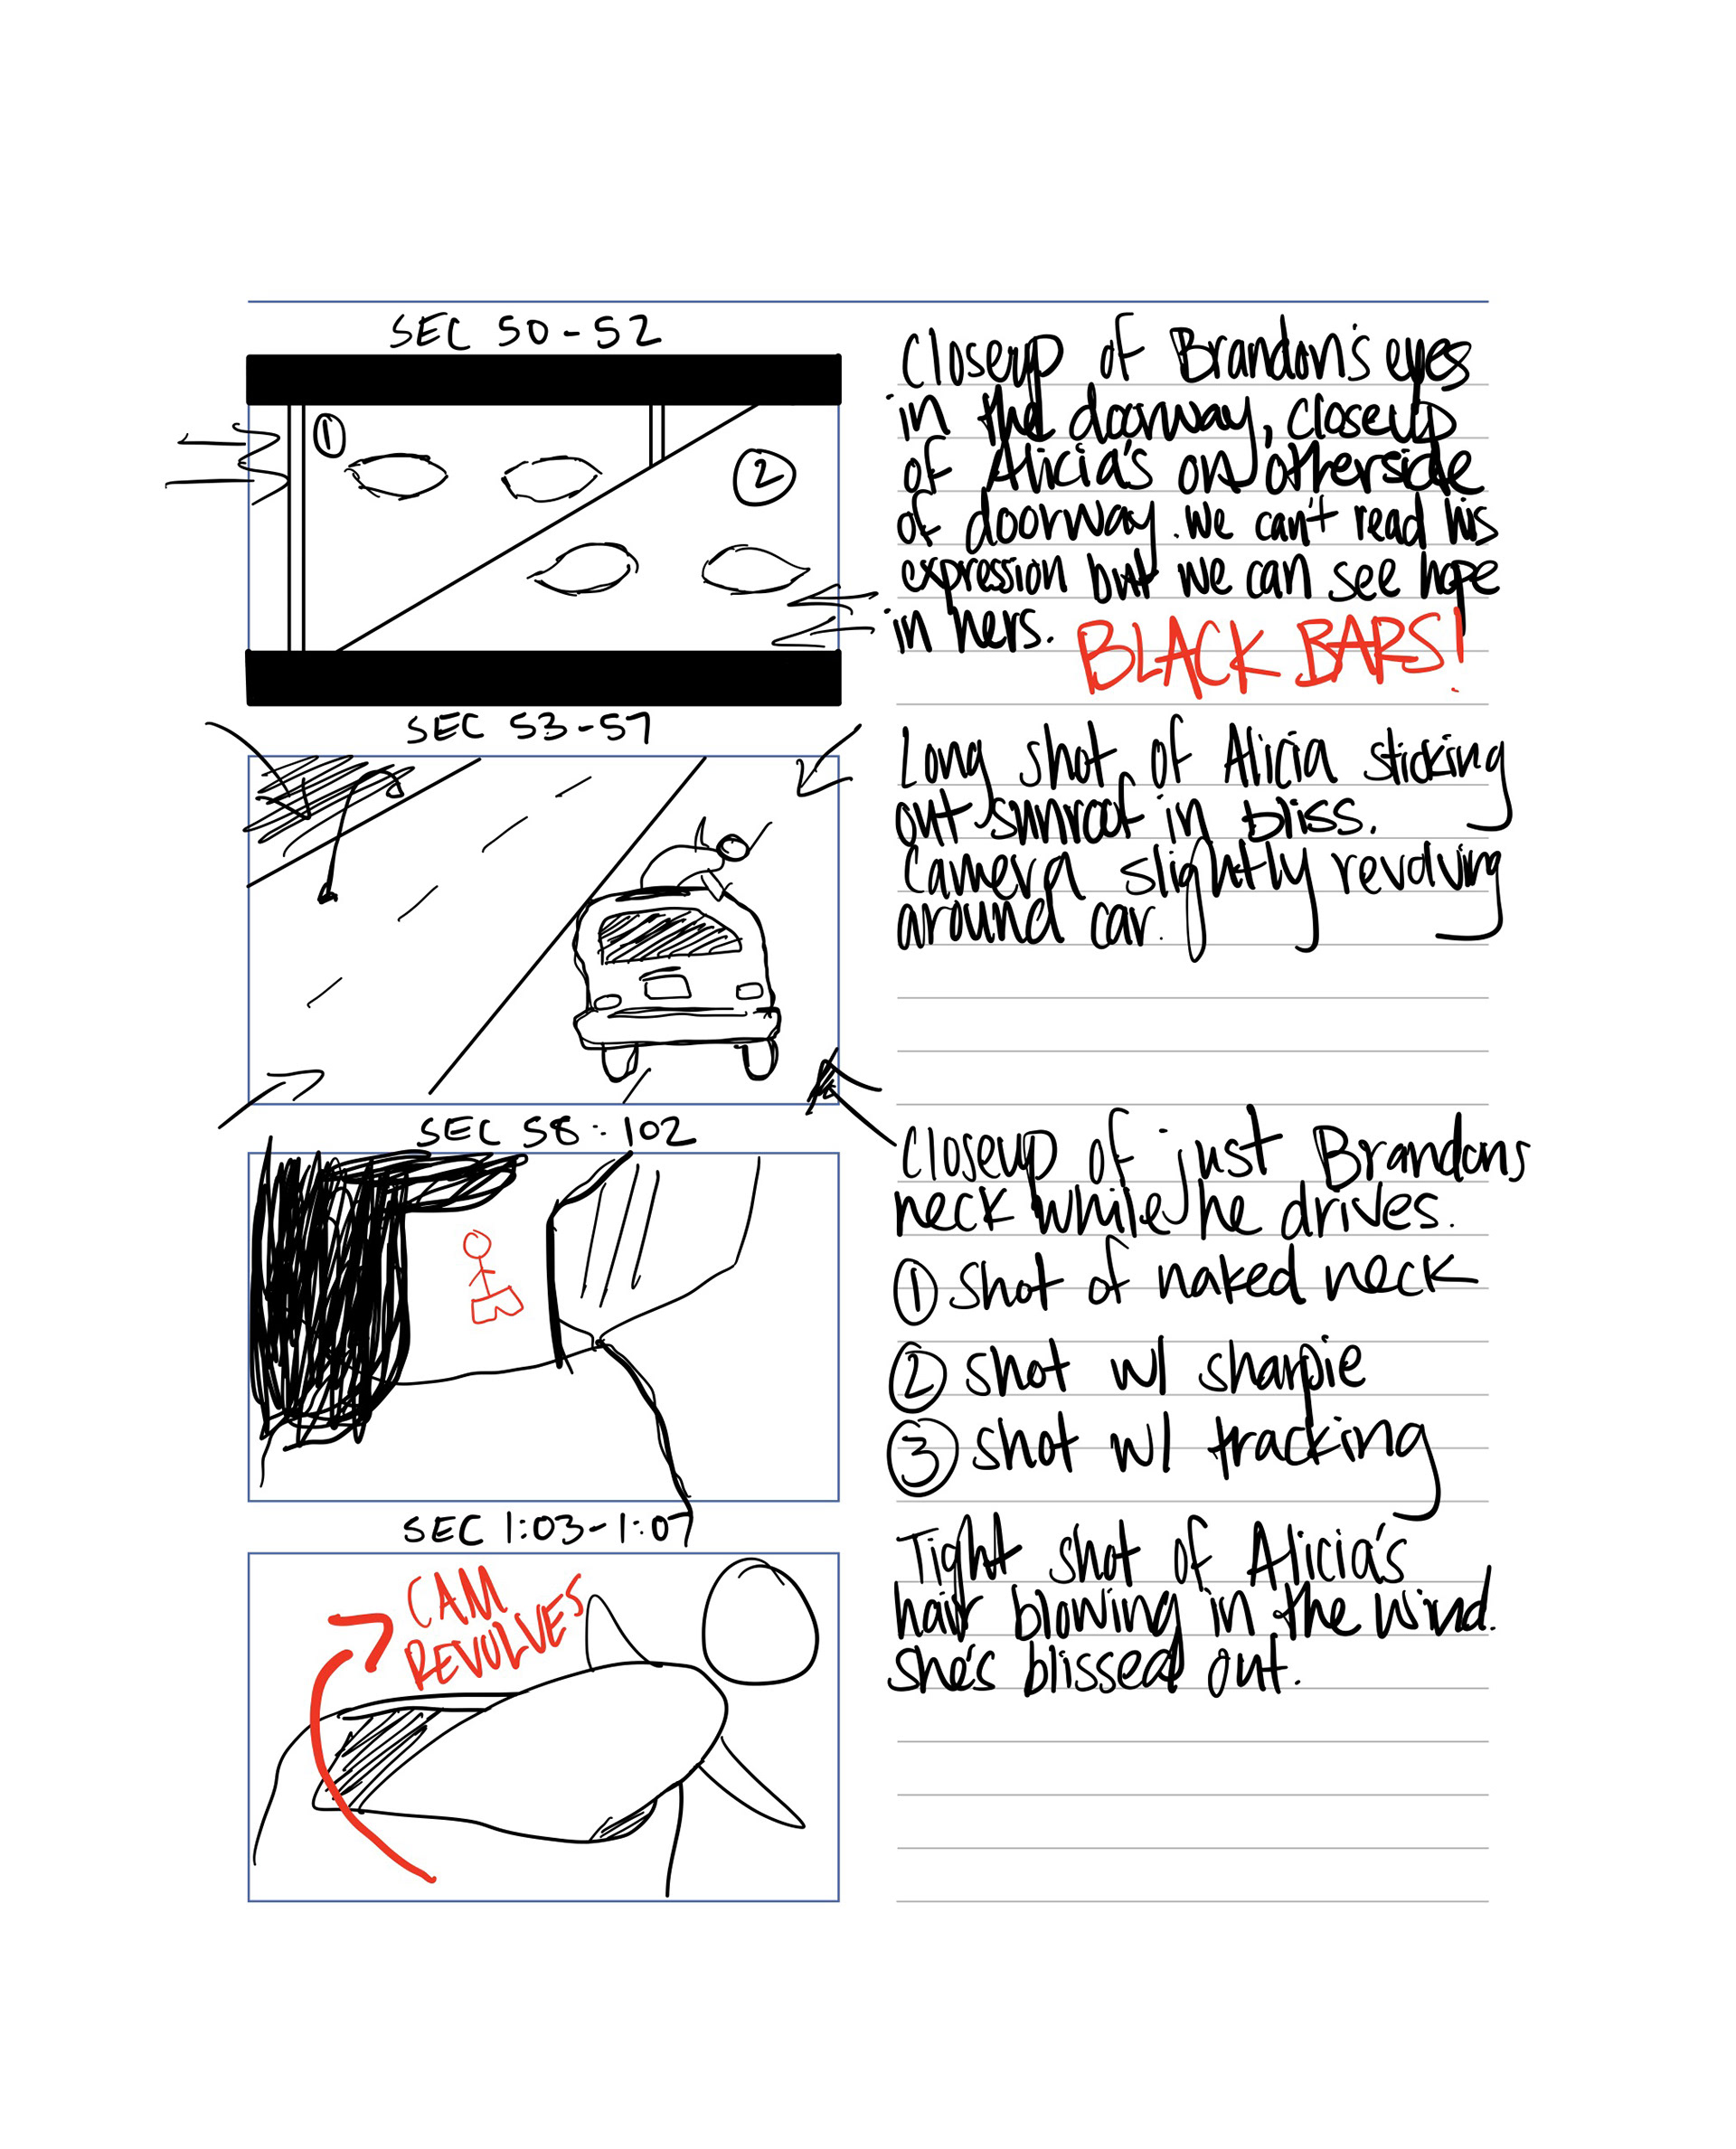 SEC 50-52
1
2
Closeup of Brandon's eyes
in the doorway, closeup
of Alicia's on otherside
of doorway. We can't read his
expression but we can see hope
in hers. BLACK BARS!
SEC 53-57
Long shot of Alicia sticking
out sunroof in bliss.
Camera slightly revolving
around car.
SEC 58-102
Closeup of just Brandons
neck while he drives.
1 shot of naked neck
2 shot w/ sharpie
3 shot w/ tracking
SEC 1:03-1:07
CAM
REVOLVES
Tight shot of Alicia's
hair blowing in the wind.
she's blissed out.